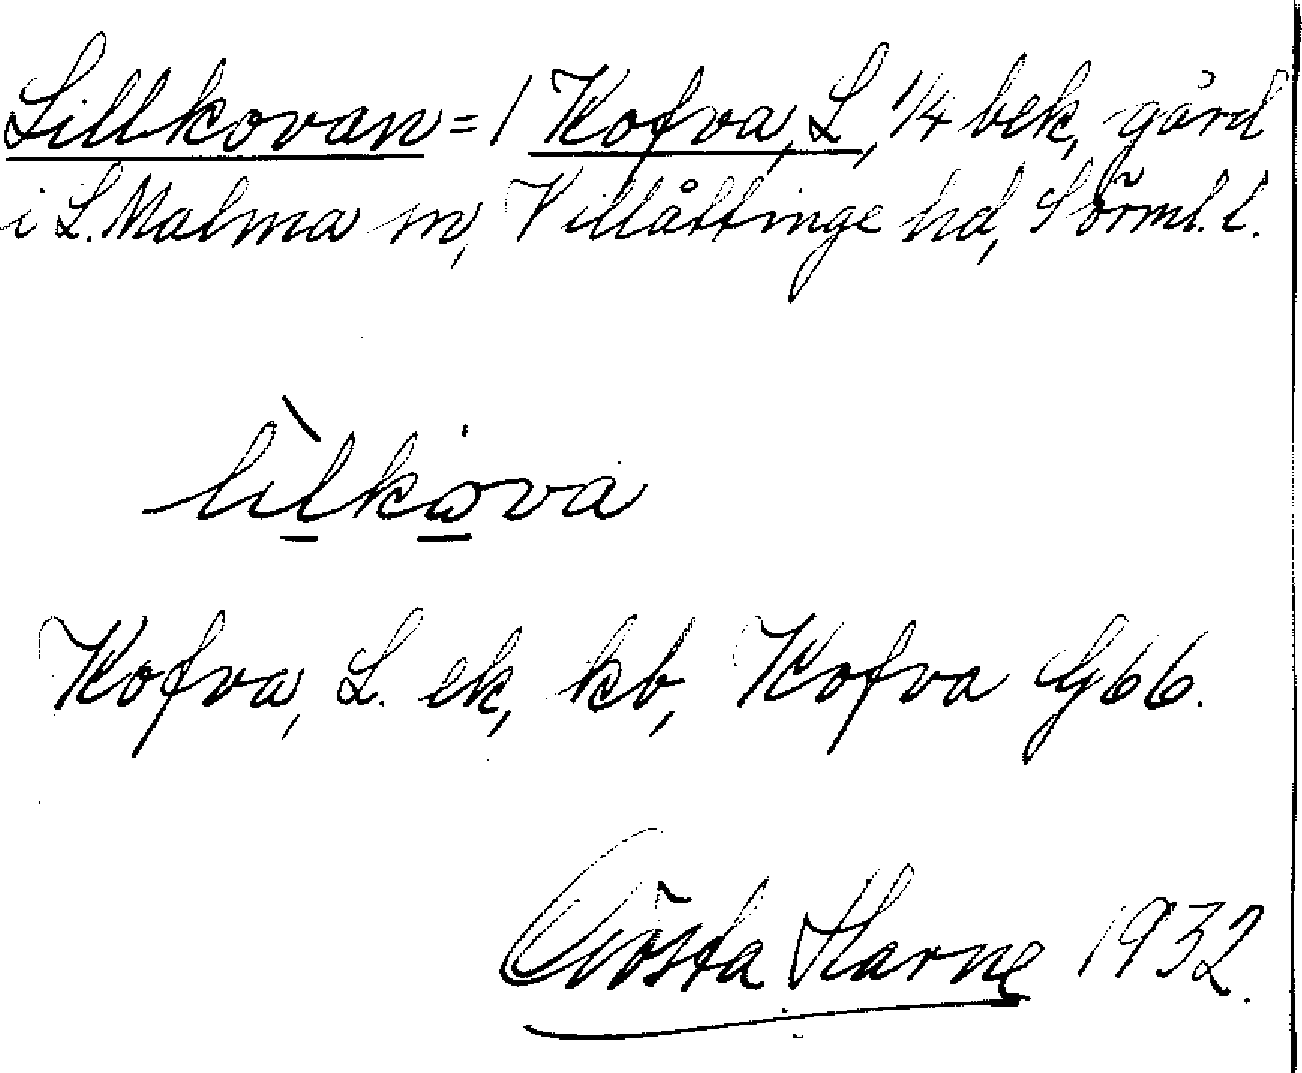 Lillkovan = / Kofva, L, 1/4 bek, gård
i L. Malma sn, Villåttinge hd, Sörml. l.
lìlkova
Kofva, L. ek, kb, Kofva G66.
Gösta Harne 1932.